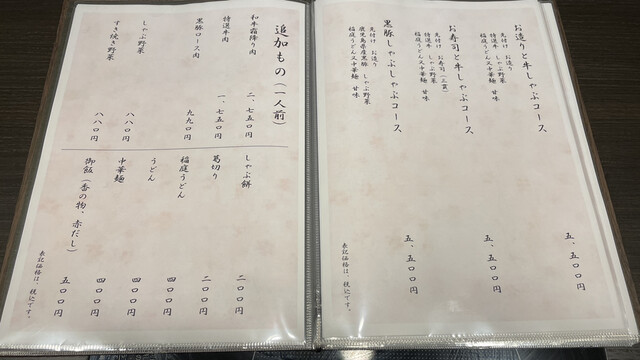 お造りと牛しゃぶコース
先付け お造り
特選牛 しゃぶ野菜
稲庭うどん又中華麺 甘味
五、五〇〇円
お寿司と牛しゃぶコース
先付け お寿司(三貫)
特選牛 しゃぶ野菜
稲庭うどん又中華麺 甘味
五、五〇〇円
黒豚しゃぶしゃぶコース
先付け お造り
鹿児島県産黒豚 しゃぶ野菜
稲庭うどん又中華麺 甘味
五、五〇〇円
表記価格は、税込です。
追加もの(一人前)
和牛霜降り肉 二、七五〇円
特選牛肉 一、七五〇円
黒豚ロース肉 九九〇円
しゃぶ野菜 八八〇円
すき焼き野菜 八八〇円
しゃぶ餅 二〇〇円
葛切り 二〇〇円
稲庭うどん 四〇〇円
うどん 四〇〇円
中華麺 四〇〇円
御飯(香の物、赤だし) 五〇〇円
表記価格は、税込です。